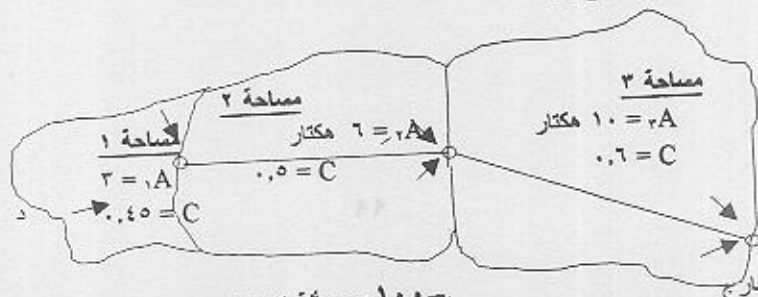 مساحة ٣
A٣ = ١٠ هكتار
C = ٠,٦
مساحة ٢
A٢ = ٦ هكتار
C = ٠,٥
مساحة ١
A١ = ٣
C = ٠,٤٥